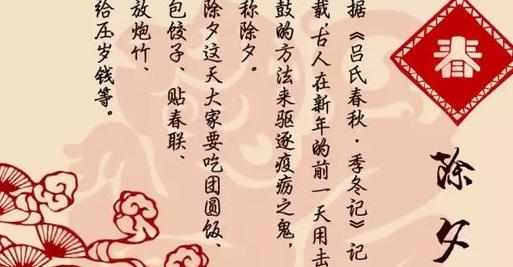 春
除夕
据《吕氏春秋·季冬记》记
载，古人在新年的前一天用击
鼓的方法来驱逐疫疬之鬼，
称除夕。
除夕这天大家要吃团圆饭、
包饺子、贴春联、
放炮竹、
给压岁钱等。